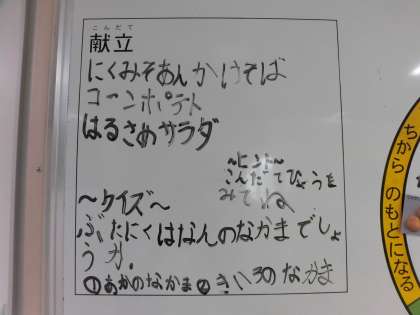 こんだて
献立
にくみそあんかけそば
コーンポテト
はるさめサラダ
〜ヒント〜
こんだてひょうを
みてね
〜クイズ〜
ぶたにくはなんのなかまでしょ
うか。
①あかのなかま②きいろのなかま
ちからのもとになる